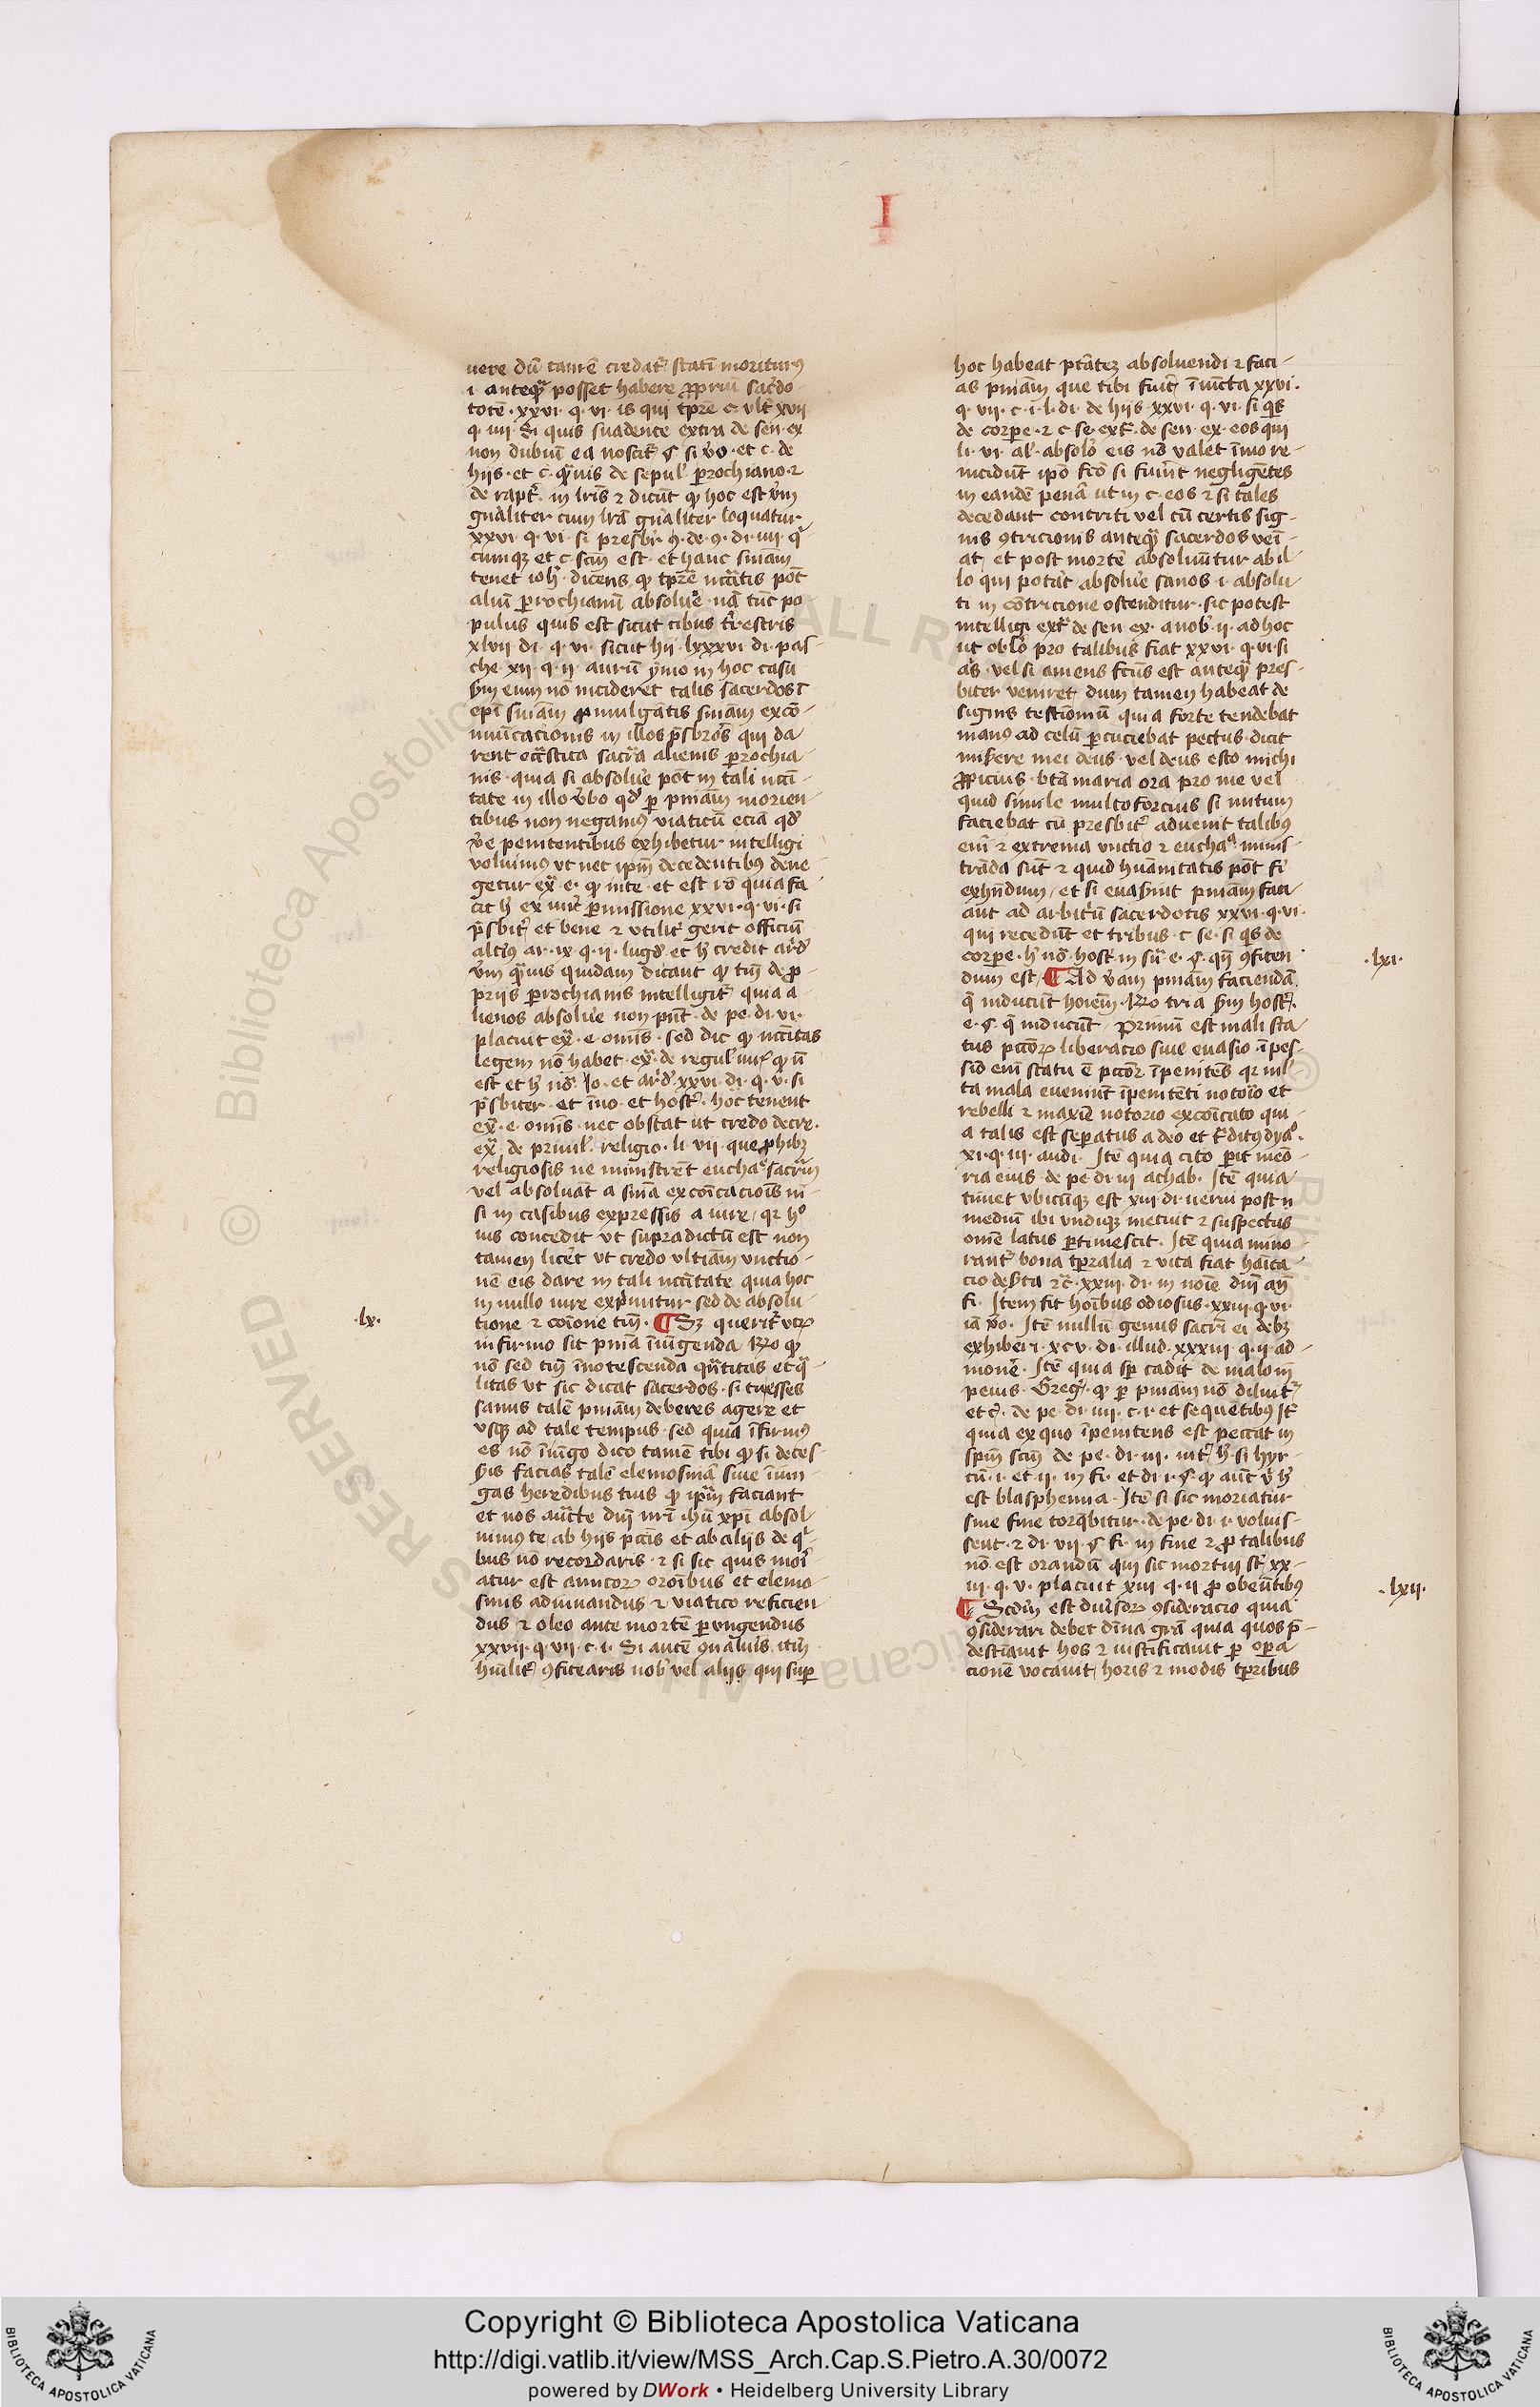 I
uere dū tamē credat᷑ statī moriturꝰ
i. anteqᷓ posset habere ꝓpriū sac᷑do-
totē. xxvi. q. vi. is qui tp̄re c. vlt᷑ xvii
q. iiii. Si quis suadente extra de sen. ex
non dubiū ea noscit᷑ ꝭ si v̓o. et c. de
hiis. et c. qᷓuis de sepul᷑ ꝑrochiano. ⁊
de rapt᷑. in lr̄is ⁊ dicūt ꝙ hoc est v̓m
gn̄aliter cum lr̄a gn̄aliter loquatur
xxvi. q. vi. si presbr᷑. ꝯ. de. ꝯ. di. iiii. qͥ
cumqꝫ et c. sc̄m est. et hanc sniāꝫ
tenet ioh̓. dicens ꝙ tp̄re nc̄c̄itatis pōt
aliū ꝑrochianū absolu̓e. nā tūc po-
pulus quis est sicut cibus t᷑restris
xlvii di. q. vi. sicut hii. lxxxvi. di. pas-
che. xii. q. ii. aurū ymo in hoc casu
scd̄m eum nō incideret talis sacerdos ī
epī sniām ꝓmulgātis sniām excō-
municacionis in illos p̄sbr̄os qui da-
rent ecc̄astica sacr̄a alienis ꝑrochia-
nis. quia si absolu̓e pōt in tali ncc̄i-
tate in illo v̓bo qd̓ ꝑ pniām morien-
tibus non negamꝰ viaticū eciā qd̓
v̓e penitentibus exhibetur intelligi
volumꝰ vt nec ip̄m decedentibꝰ dene-
getur exͣ. e. ꝙ in te. et est rō quia fa-
cit h̓ ex iur̄ ꝑmissione xxvi. q. vi. si
p̄sbit᷑ et bene ⁊ vtilit᷑ gerit officiū
altiꝰ ar. ix. q. ii. lugd᷑. et h̓ credit ar᷑d̓
v̓m qᷓuis quidam dicant ꝙ tm̄ de ꝓ-
priis ꝑrochianis intelligit᷑ quia a-
lienos absolu̓e non pn̄t. de pe. di. vi.
placuit exͣ. e. omīs. sed dic ꝙ ncc̄itas
legem nō habet. exͣ. de regul᷑ iur᷑. ꝙ n̄
est et h̓ nōᷓ. Io. et ar᷑d̓. xxvi. di. q. v. si
p̄sbiter. et ino. et host᷑. hoc tenent
exͣ. e. omīs. nec obstat ut credo decre.
exͣ. de priuil᷑. religio. li. vii. que ꝓhibꝫ
religiosis ne ministrēt eucha᷑ sacr̄m
vel absoluāt a snīa excōīcacioīs ni-
si in casibus expressis a iure. qꝛ hͦ
ius concedit vt supradictū est non
tamen licet ut credo vltiām vnctio-
nē eis dare in tali ncc̄itate quia hoc
in nullo iure exp̄mitur sed de absolu-
·lx·
tione ⁊ cōīone tm̄. ¶ Sꝫ querit᷑ vtꝝ
infirmo sit pnīa iniūgenda Rͦ ꝙ
nō sed tm̄ īnotescenda qᷓtitas et qᷓ-
litas vt sic dicat sacerdos. si tu esses
sanus talē pniām deberes agere et
vsqꝫ ad tale tempus. sed quia īfirmꝰ
es nō īiūgo dico tamē tibi ꝙ si deces-
s̓is facias talē elemosinā siue iniun-
gas heredibus tuis ꝙ ip̄m faciant
et nos auc̄te dn̄i nr̄i ih̄u xp̄i absol-
uimꝰ te ab hiis pc̄cīs et ab aliis de qͥ-
bus nō recordaris. ⁊ si sic quis mori-
atur est amicoꝝ orōībus et elemo-
sinis adiuuandus ⁊ viatico reficien-
dus ⁊ oleo ante mortē ꝑungendus
xxvii. q. vii. c. i. Si autē ꝯualuis̓. itm̄
hūilit᷑ ꝯfitearis nob̓ vel aliis qui sup̄
hoc habeat ptātēꝫ absoluendi ⁊ faci-
as pniām que tibi fuit īiūcta xxvi.
q. vii. c. i. l. di. de hiis. xxvi. q. vi. si qͥs
de corꝑe. ⁊ c. se. ext᷑. de sen. ex. eos qui
li. vi. al᷑. absolō eis nō valet īmo re-
incidūt ipō fc̄ō si fuīt negligētes
in eandē penā ut in c. eos ⁊ si tales
decedant contriti vel cū certis sig-
nis ꝯtricionis anteqᷓ sacerdos veī-
at, et post mortē absoluūtur ab il-
lo qui potūt absolu̓e sanos. i. absolu-
ti in cōtricione ostenditur. sic potest
intelligi ext᷑ de sen ex. a nob̓. ii. ad hoc
ut oblō pro talibus fiat xxvi. q. vi. si
as̓. vel si amens fc̄us est anteqᷓ pres-
biter veniret dum tamen habeat de
signis testimoniū quia forte tendebat
manꝰ ad celū ꝑcuciebat pectus. dicit
mis̓ere mei deus. vel deus esto michi
ꝓpicius. btā maria ora pro me vel
quid simile multo forcius si nutum
faciebat cū presbit᷑ aduenit talibꝰ
enī ⁊ extrema vnctio ⁊ eucha᷑ minis-
trāda sūt ⁊ quid hūanitatis pōt fi̓
exhn̄dum, et si euas̓int pniām faci-
ant ad arbitriū sacerdotis xxvi. q. vi.
qui recedūt et tribus. c. se. si qͥs de
corꝑe. h̓ nōᷓ. host᷑. in sū̄. e. ꝭ. qn̄ ꝯfiten-
·lxi·
dum est. ¶ Ad v̓am pniām faciendā
qͥ inducūt hoīeꝫ. Rͦ tria scd̄m host᷑.
e. ꝭ. qͥ inducunt. Primū est mali sta-
tus pcc̄oꝝ liberacio siue euasio. ī pes-
sīō enī statu ē pcc̄or īpenitēs qꝛ mͣ-
ta mala eueniūt īpenitēti notoīo et
rebelli ⁊ maxīe notorio excōīcato qui-
a talis est seꝑatus a deo et t᷑ditꝰ dyaͦ.
xi. q. iii. audi. Itē quia cito ꝑit meō-
ria eius. de pe. di. iii. achab. Itē quia
timet vbicūqꝫ est. xiii. di. nerui. post n̄
mediū ibi vndiqꝫ metuit ⁊ suspectus
omē latus ꝑtimescit. Itē quia mino-
rant᷑ bona tp̄ralia ⁊ vita fiat haīta-
cio des̓ta ⁊c̄. xxiii. di. in noīe. dn̄i an̄
fi. Item fit hoībus odiosus. xxiii. q. vi.
iā v̓o. Itē nullū genus sacr̄i ei debꝫ
exhiberi. xcv. di. illud. xxxiii. q. ii. ad-
monē᷑. Itē quia sp̄ cadit de malo in
peius. Greg᷑. ꝙ ꝑ pniām nō diluit᷑
et c᷑. de pe. di. iiii. c. i. et sequētibꝰ It᷑
quia ex quo īpenitens est peccat in
sp̄m sc̄m de pe. di. iii. int᷑ h̓. si hyr-
cū. i. et ii. in fi. et di. i. ꝭ. ꝙ aūt v̓ h̓
est blasphemia. Itē si sic moriatur
sine fine torqͥbitur. de pe. di. i. voluis-
sent. ⁊ di. vii. ꝭ. fi. in fine ⁊ ꝓ talibus
nō est orandū qui sic mortui st̄ xx-
iii. q. v. placuit xiii. q. ii ꝓ obeūtibꝰ
·lxii·
¶ Scd̄m est diuīsoꝝ ꝯsideracio quia
ꝯsiderari debet dīna grā quia quos p̄-
destinauit hos ⁊ iustificauit ꝑ oꝑa-
cionē vocauit, horis ⁊ modis tp̄ribus
Copyright © Biblioteca Apostolica Vaticana
http://digi.vatlib.it/view/MSS_Arch.Cap.S.Pietro.A.30/0072
powered by DWork • Heidelberg University Library
BIBLIOTECA APOSTOLICA VATICANA
BIBLIOTECA APOSTOLICA VATICANA